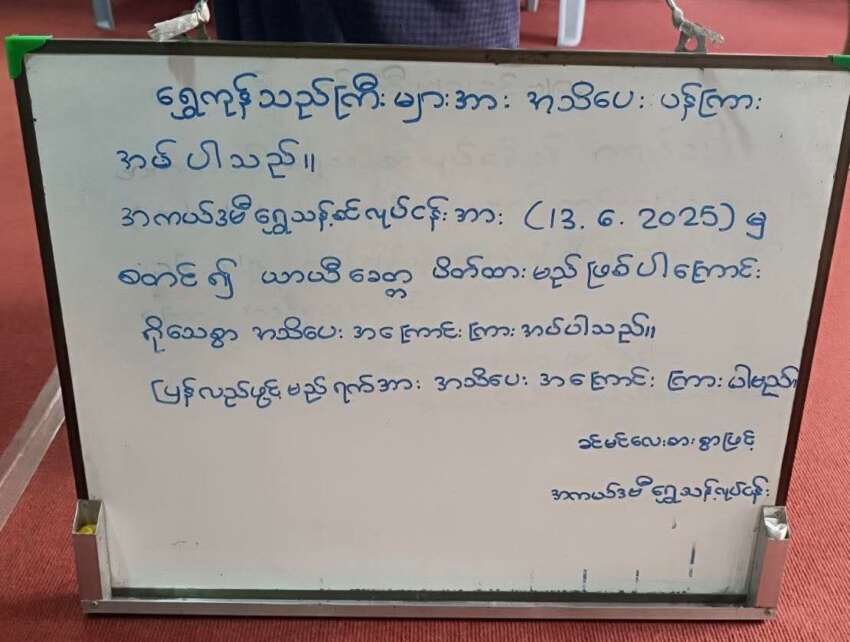 ရွှေကုန်သည်ကြီးများအား အသိပေး ပန်ကြား
အပ်ပါသည်။
အကယ်ဒမီရွှေသန့်စင်လုပ်ငန်းအား (13. 6. 2025) မှ
စတင်၍ ယာယီခေတ္တ ပိတ်ထားမည်ဖြစ်ပါကြောင်း
ရိုသေစွာ အသိပေးအကြောင်းကြားအပ်ပါသည်။
ပြန်လည်ဖွင့်မည်ရက်အား အသိပေး အကြောင်း ကြားပါမည်။
ခင်မင်လေးစားစွာဖြင့်
အကယ်ဒမီရွှေသန့်လုပ်ငန်း